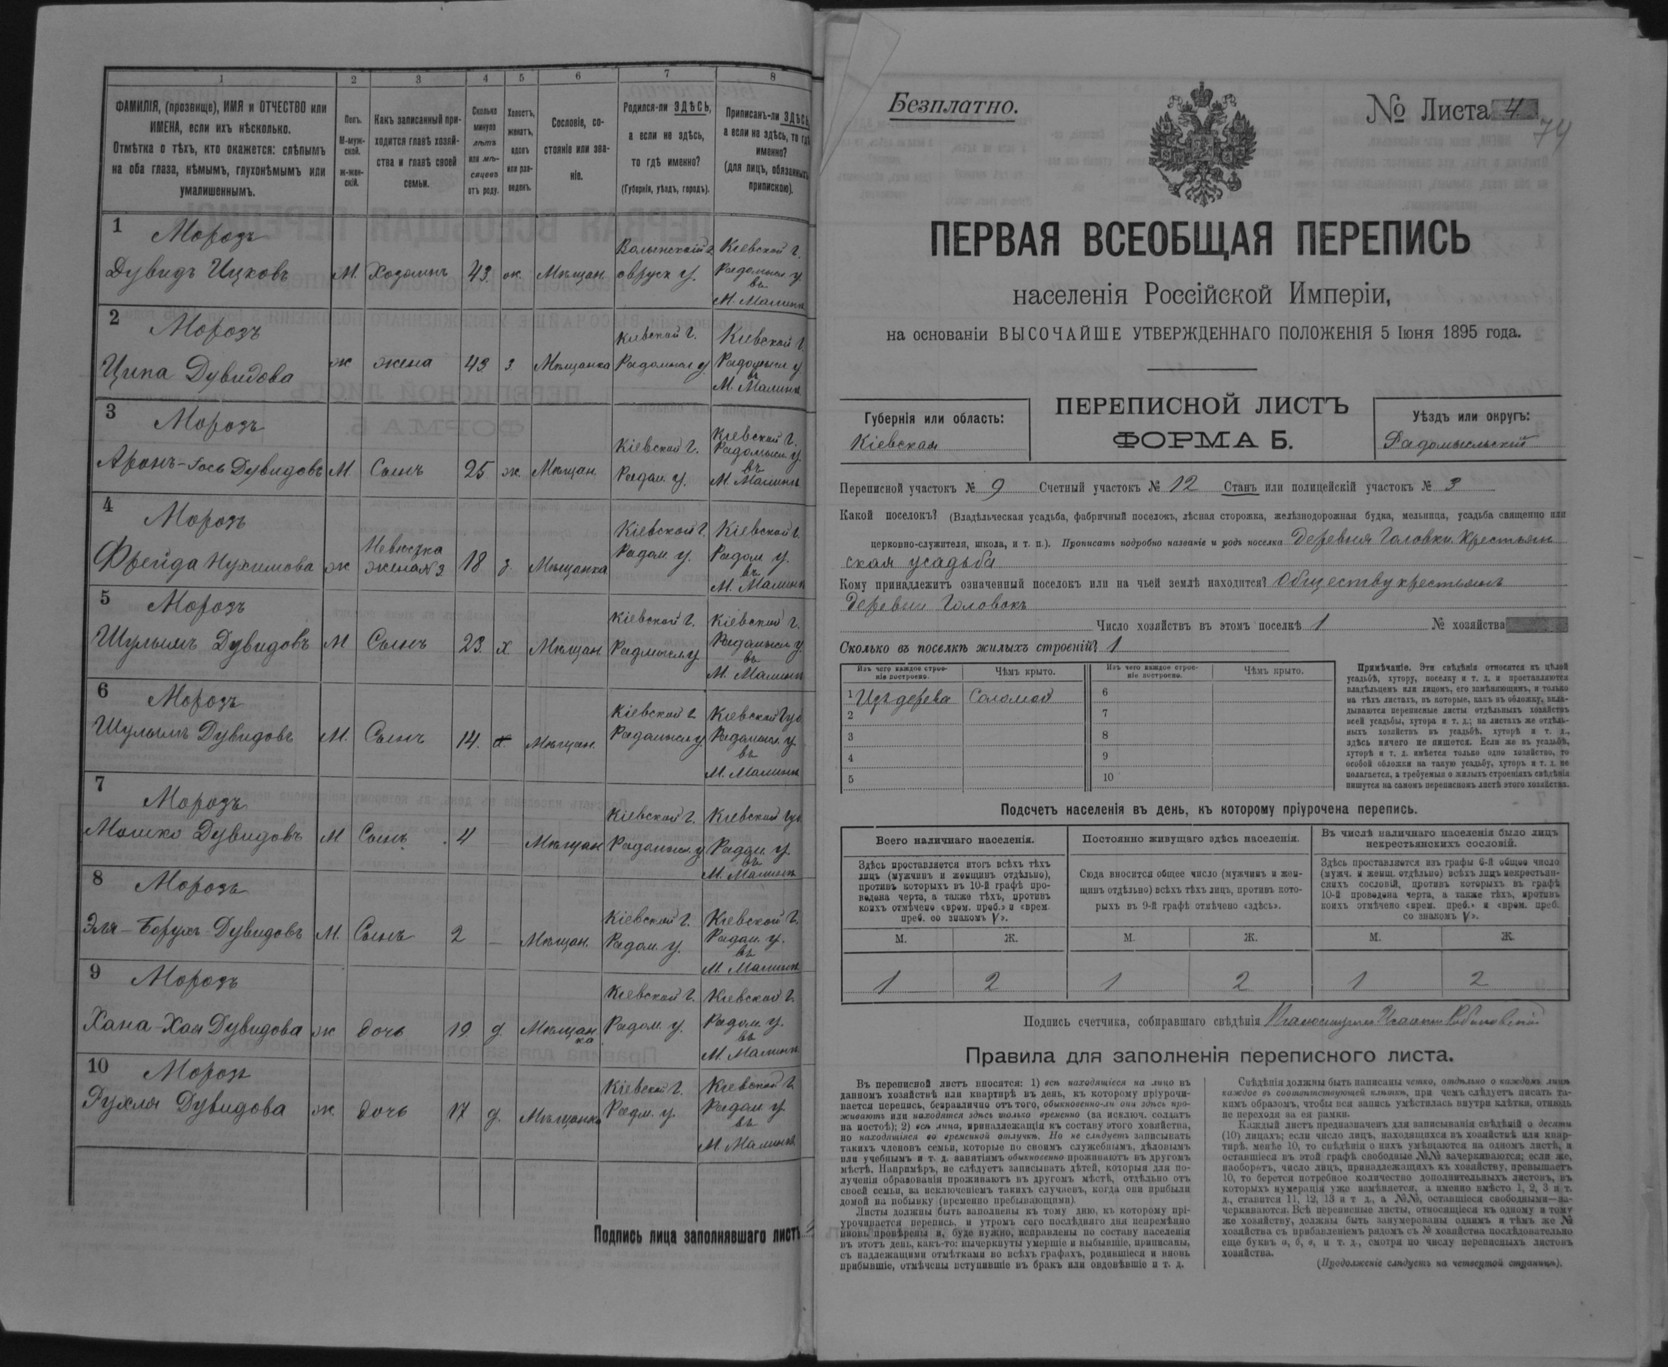 1 2 3 4 5 6 7 8
ФАМИЛІЯ, (прозвище), ИМЯ и ОТЧЕСТВО или
ИМЕНА, если ихъ нѣсколько.
Отмѣтка о тѣхъ, кто окажется: слѣпымъ
на оба глаза, нѣмымъ, глухонѣмымъ или
умалишеннымъ.
Полъ.
М-муж-
ской.
ж-жен-
скій.
Какъ записанный при-
ходится главѣ хозяй-
ства и главѣ своей
семьи.
Сколько
минуло
лѣтъ
или мѣ-
сяцевъ
отъ роду.
Холостъ,
женатъ,
вдовъ
или раз-
веденъ.
Сословіе, со-
стояніе или зва-
ніе.
Родился-ли ЗДѢСЬ,
а если не здѣсь,
то гдѣ именно?
(Губернія, уѣздъ, городъ).
Приписанъ-ли ЗДѢСЬ,
а если не здѣсь, то гдѣ
именно?
(для лицъ, обязанныхъ
припискою).
1 Морозъ
Дувидъ Ицковъ М. Хозяинъ 43 ж. Мѣщан. Волынской г. овруч у. Кіевской г. Радомысл у. въ М. Малинѣ
2 Морозъ
Ципа Дувидова ж жена 43 з. Мѣщанка Кіевской г. Радомысл у. Кіевской г. Радомысл у. въ М. Малинѣ
3 Морозъ
Аронъ-Іось Дувидовъ М Сынъ 25 ж. Мѣщан. Кіевской г. Радом. у. Кіевской г. Радомысл у. въ М. Малинѣ
4 Морозъ
Фрейда Нухимова ж Невѣстка жена №3 18 з. Мѣщанка Кіевской г. Радом у. Кіевской г. Радом у. въ М. Малинѣ
5 Морозъ
Шулымъ Дувидовъ М Сынъ 23 х Мѣщан Кіевской г. Радмысл у Кіевской г. Радомысл у. въ М. Малинѣ
6 Морозъ
Шулымъ Дувидовъ М. Сынъ 14. Мѣщан. Кіевской г. Радомысл у Кіевской губ Радомысл. у. въ М. Малинѣ
7 Морозъ
Мошко Дувидовъ М Сынъ 4 Мѣщан Кіевской г. Радомысл. у Кіевской губ Радом. у. въ М. Малинѣ
8 Морозъ
Эля-Борухъ Дувидовъ М. Сынъ 2 — Мѣщан. Кіевской г. Радом. у. Кіевской г. Радом. у. въ М. Малинѣ
9 Морозъ
Хана-Хая Дувидова ж дочь 19 д. Мѣщанка Кіевской г. Радом. у. Кіевской г. Радом. у. въ М. Малинѣ
10 Морозъ
Рухля Дувидова ж дочь 17 д. Мѣщанка Кіевской г. Радм. у. Кіевской г. Радом у. въ М. Малинѣ
Подпись лица заполнявшаго листъ
Безплатно.
№ Листа 4
74
ПЕРВАЯ ВСЕОБЩАЯ ПЕРЕПИСЬ
населенія Россійской Имперіи,
на основаніи ВЫСОЧАЙШЕ УТВЕРЖДЕННАГО ПОЛОЖЕНІЯ 5 Іюня 1895 года.
ПЕРЕПИСНОЙ ЛИСТЪ
ФОРМА Б.
Губернія или область:
Кіевская
Уѣздъ или округъ:
Радомысльскій
Переписной участокъ № 9 Счетный участокъ № 12 Станъ или полицейскій участокъ № 3
Какой поселокъ? (Владѣльческая усадьба, фабричный поселокъ, лѣсная сторожка, желѣзнодорожная будка, мельница, усадьба священно или
церковно-служителя, школа, и т. п.). Прописать подробно названіе и родъ поселка Деревня Головки. Крестьян
ская усадьба
Кому принадлежитъ означенный поселокъ или на чьей землѣ находится? Обществу крестьянъ
Деревни Головокъ
Число хозяйствъ въ этомъ поселкѣ 1 № хозяйства
Сколько въ поселкѣ жилыхъ строеній? 1
Изъ чего каждое строе-
ніе построено.
Чѣмъ крыто.
Изъ чего каждое строе-
ніе построено.
Чѣмъ крыто.
1 Изъ дерева Соломой 6
2 7
3 8
4 9
5 10
Примѣчаніе. Эти свѣдѣнія относятся къ цѣлой
усадьбѣ, хутору, поселку и т. д. и проставляются
владѣльцемъ или лицомъ, его замѣняющимъ, и только
на тѣхъ листахъ, въ которые, какъ въ обложку, вкла-
дываются переписные листы отдѣльныхъ хозяйствъ
всей усадьбы, хутора и т. д.; на листахъ же отдѣль-
ныхъ хозяйствъ въ усадьбѣ, хуторѣ и т. д.,
здѣсь ничего не пишется. Если же въ усадьбѣ,
хуторѣ и т. д. имѣется только одно хозяйство, то
особой обложки на такую усадьбу, хуторъ и т. д. не
полагается, а требуемыя о жилыхъ строеніяхъ свѣдѣнія
пишутся на самомъ переписномъ листѣ этого хозяйства.
Подсчетъ населенія въ день, къ которому пріурочена перепись.
Всего наличнаго населенія.
Здѣсь проставляется итогъ всѣхъ тѣхъ
лицъ (мужчинъ и женщинъ отдѣльно),
противъ которыхъ въ 10-й графѣ про-
ведена черта, а также тѣхъ, противъ
коихъ отмѣчено «врем. преб.» и «врем.
преб. со знакомъ V».
Постоянно живущаго здѣсь населенія.
Сюда вносится общее число (мужчинъ и жен-
щинъ отдѣльно) всѣхъ тѣхъ лицъ, противъ кото-
рыхъ въ 9-й графѣ отмѣчено «здѣсь».
Въ числѣ наличнаго населенія было лицъ
некрестьянскихъ сословій.
Здѣсь проставляется изъ графы 6-й общее число
(мужч. и женщ. отдѣльно) всѣхъ лицъ некрестьян-
скихъ сословій, противъ которыхъ въ графѣ
10-й проведена черта, а также тѣхъ, противъ
коихъ отмѣчено «врем. преб.» и «врем. преб.
со знакомъ V».
М. Ж. М. Ж. М. Ж.
1 2 1 2 1 2
Подпись счетчика, собиравшаго свѣдѣнія
Правила для заполненія переписного листа.
Въ переписной листъ вносятся: 1) всѣ находящіеся на лицо въ
данномъ хозяйствѣ или квартирѣ въ день, къ которому пріурочи-
вается перепись, безразлично отъ того, обыкновенно-ли они здѣсь про-
живаютъ или находятся здѣсь только временно (за исключ. солдатъ
на постоѣ); 2) всѣ лица, принадлежащія къ составу этого хозяйства,
но находящіяся во временной отлучкѣ. Но не слѣдуетъ записывать
такихъ членовъ семьи, которые по своимъ служебнымъ, дѣловымъ
или учебнымъ и т. д. занятіямъ обыкновенно проживаютъ въ другомъ
мѣстѣ. Напримѣръ, не слѣдуетъ записывать дѣтей, которыя для по-
лученія образованія проживаютъ въ другомъ мѣстѣ, отдѣльно отъ
своей семьи, за исключеніемъ такихъ случаевъ, когда они прибыли
домой на побывку (временно пребывающими).
Листы должны быть заполнены къ тому дню, къ которому прі-
урочивается перепись, и утромъ сего послѣдняго дня непремѣнно
вновь провѣрены и, буде нужно, исправлены по составу населенія
въ этотъ день, какъ-то: вычеркнуты умершіе и выбывшіе, приписаны,
съ надлежащими отмѣтками во всѣхъ графахъ, родившіеся и вновь
прибывшіе, отмѣчены вступившіе въ бракъ или овдовѣвшіе и т. д.
Свѣдѣнія должны быть написаны четко, отдѣльно о каждомъ лицѣ
каждое въ соотвѣтствующей клѣткѣ, при чемъ слѣдуетъ писать та-
кимъ образомъ, чтобы вся запись умѣстилась внутри клѣтки, отнюдь
не переходя за ея рамки.
Каждый листъ предназначенъ для записыванія свѣдѣній о десяти
(10) лицахъ; если число лицъ, находящихся въ хозяйствѣ или квар-
тирѣ, менѣе 10, то свѣдѣнія о нихъ умѣщаются на одномъ листѣ, а
оставшіеся въ этой графѣ свободные №№ зачеркиваются; если же,
наоборотъ, число лицъ, принадлежащихъ къ хозяйству, превышаетъ
10, то берется потребное количество дополнительныхъ листовъ, въ
которыхъ нумерація уже измѣняется, а именно вмѣсто 1, 2, 3 и т.
д., ставится 11, 12, 13 и т. д., а №№, оставшіеся свободными—за-
черкиваются. Всѣ переписные листы, относящіеся къ одному и тому
же хозяйству, должны быть занумерованы однимъ и тѣмъ же №
хозяйства съ прибавленіемъ рядомъ съ № хозяйства послѣдовательно
еще буквъ а, б, в, и т. д., смотря по числу переписныхъ листовъ
хозяйства.
(Продолженіе слѣдуетъ на четвертой страницѣ).